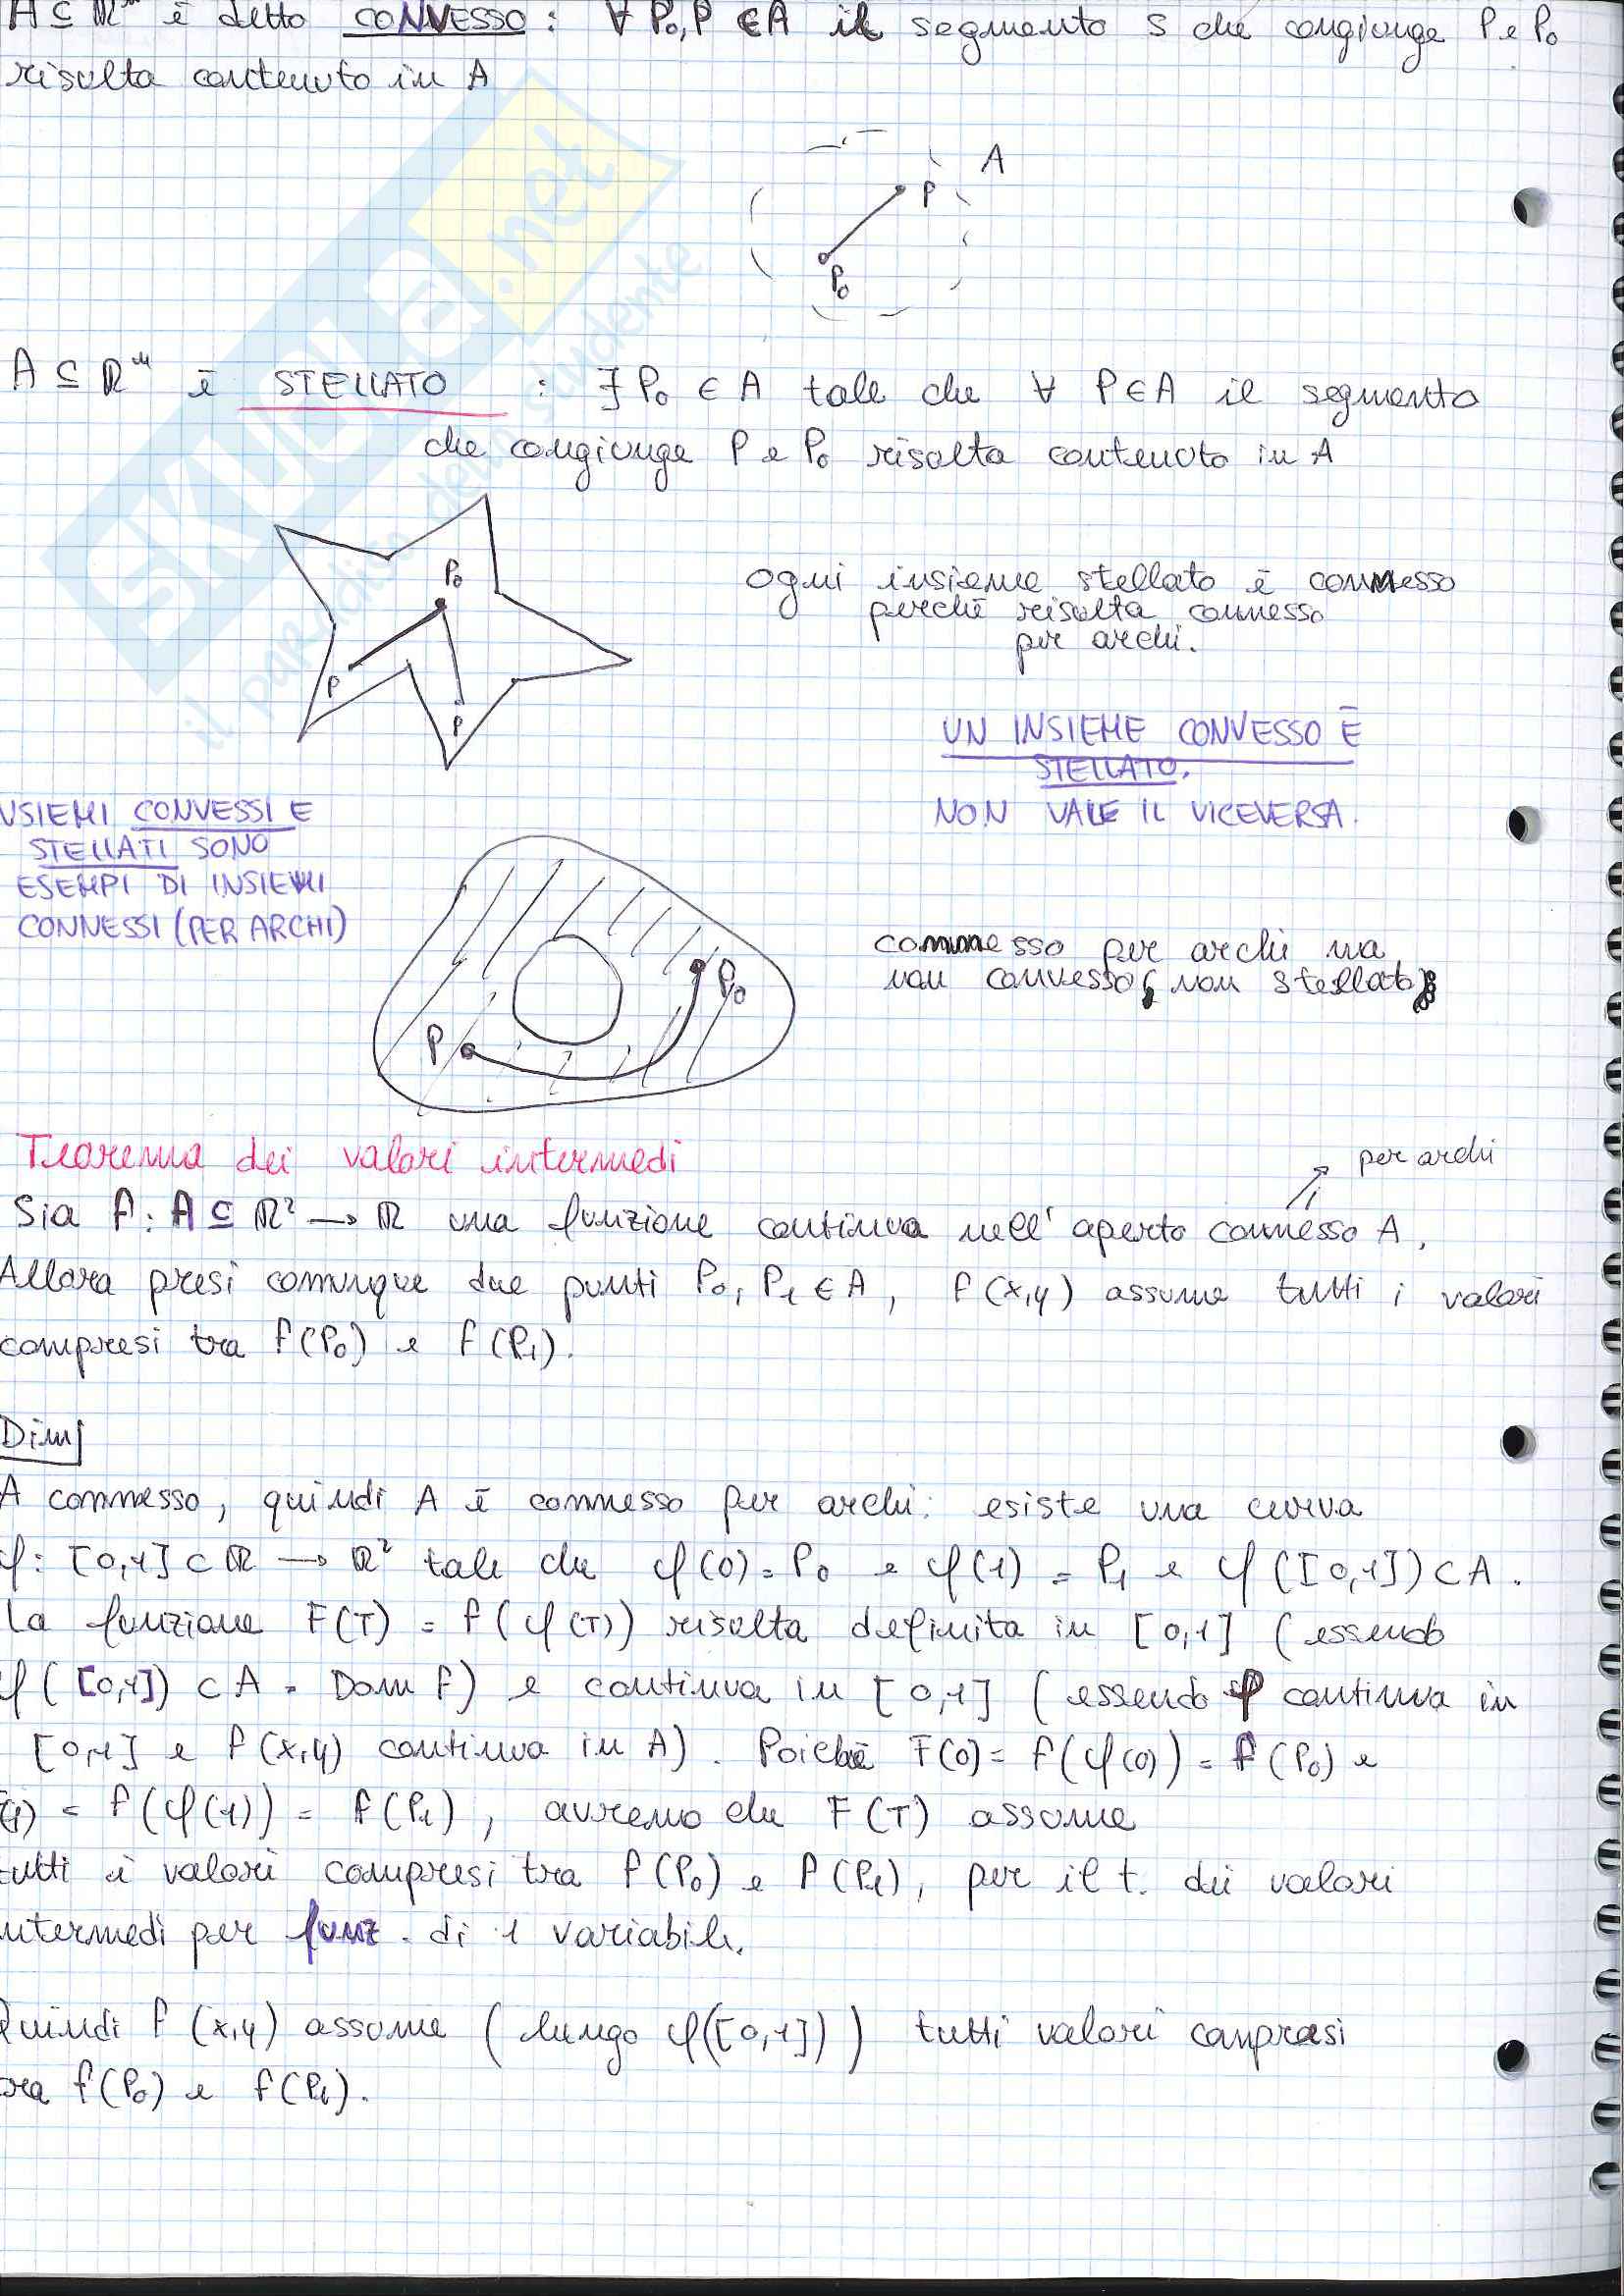 A ⊆ ℝᵐ è detto CONVESSO : ∀ P₀,P ∈ A il segmento s che congiunge P e P₀
risulta contenuto in A
A
P
P₀
A ⊆ ℝᵐ è STELLATO : ∃ P₀ ∈ A tale che ∀ P ∈ A il segmento
che congiunge P e P₀ risulta contenuto in A
P₀
P
P
Ogni insieme stellato è connesso
perchè risulta connesso
per archi.
UN INSIEME CONVESSO È
STELLATO.
NON VALE IL VICEVERSA.
NSIEMI CONVESSI E
STELLATI SONO
ESEMPI DI INSIEMI
CONNESSI (PER ARCHI)
P₀
P
connesso per archi ma
non convesso (non stellato)
Teorema dei valori intermedi
per archi
Sia f: A ⊆ ℝ² → ℝ una funzione continua nell'aperto connesso A.
Allora presi comunque due punti P₀, P₁ ∈ A, f(x,y) assume tutti i valori
compresi tra f(P₀) e f(P₁).
Dim
A connesso, quindi A è connesso per archi: esiste una curva
φ: [0,1] ⊂ ℝ → ℝ² tale che φ(0) = P₀ e φ(1) = P₁ e φ([0,1]) ⊂ A.
La funzione F(T) = f(φ(T)) risulta definita in [0,1] (essendo
φ([0,1]) ⊂ A = Dom f) e continua in [0,1] (essendo φ continua in
[0,1] e f(x,y) continua in A). Poichè F(0) = f(φ(0)) = f(P₀) e
(1) = f(φ(1)) = f(P₁), avremo che F(T) assume
tutti i valori compresi tra f(P₀) e f(P₁), per il t. dei valori
ntermedi per funz. di 1 variabile.
Quindi f(x,y) assume (lungo φ([0,1])) tutti valori compresi
ra f(P₀) e f(P₁).
SKUOLA.net
il paradiso dello studente